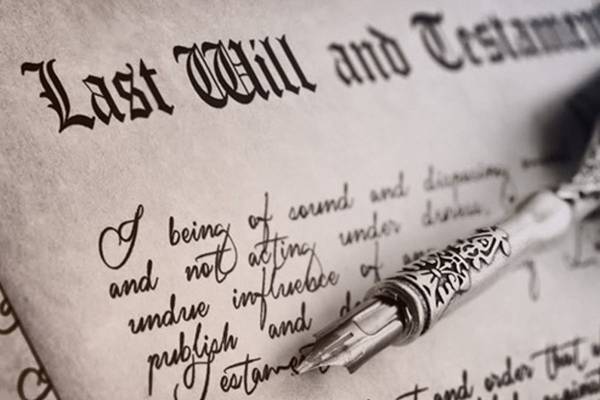 Last Will and Testament
I being of sound and disposing
and not acting under duress,
undue influence of any
publish and
estament
t and order that a